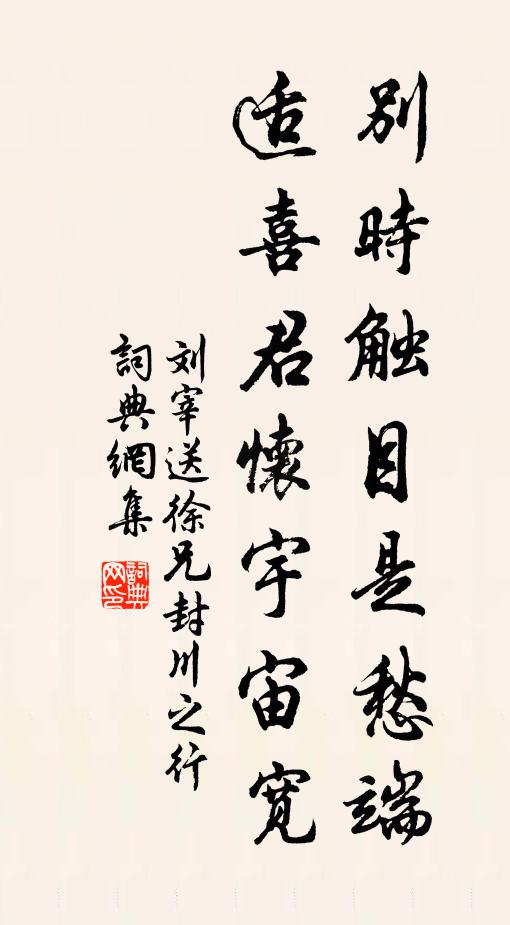 别時触目是愁端
适喜君懷宇宙寬
刘宰送徐兄封川之行
詞典網集
詞典网印